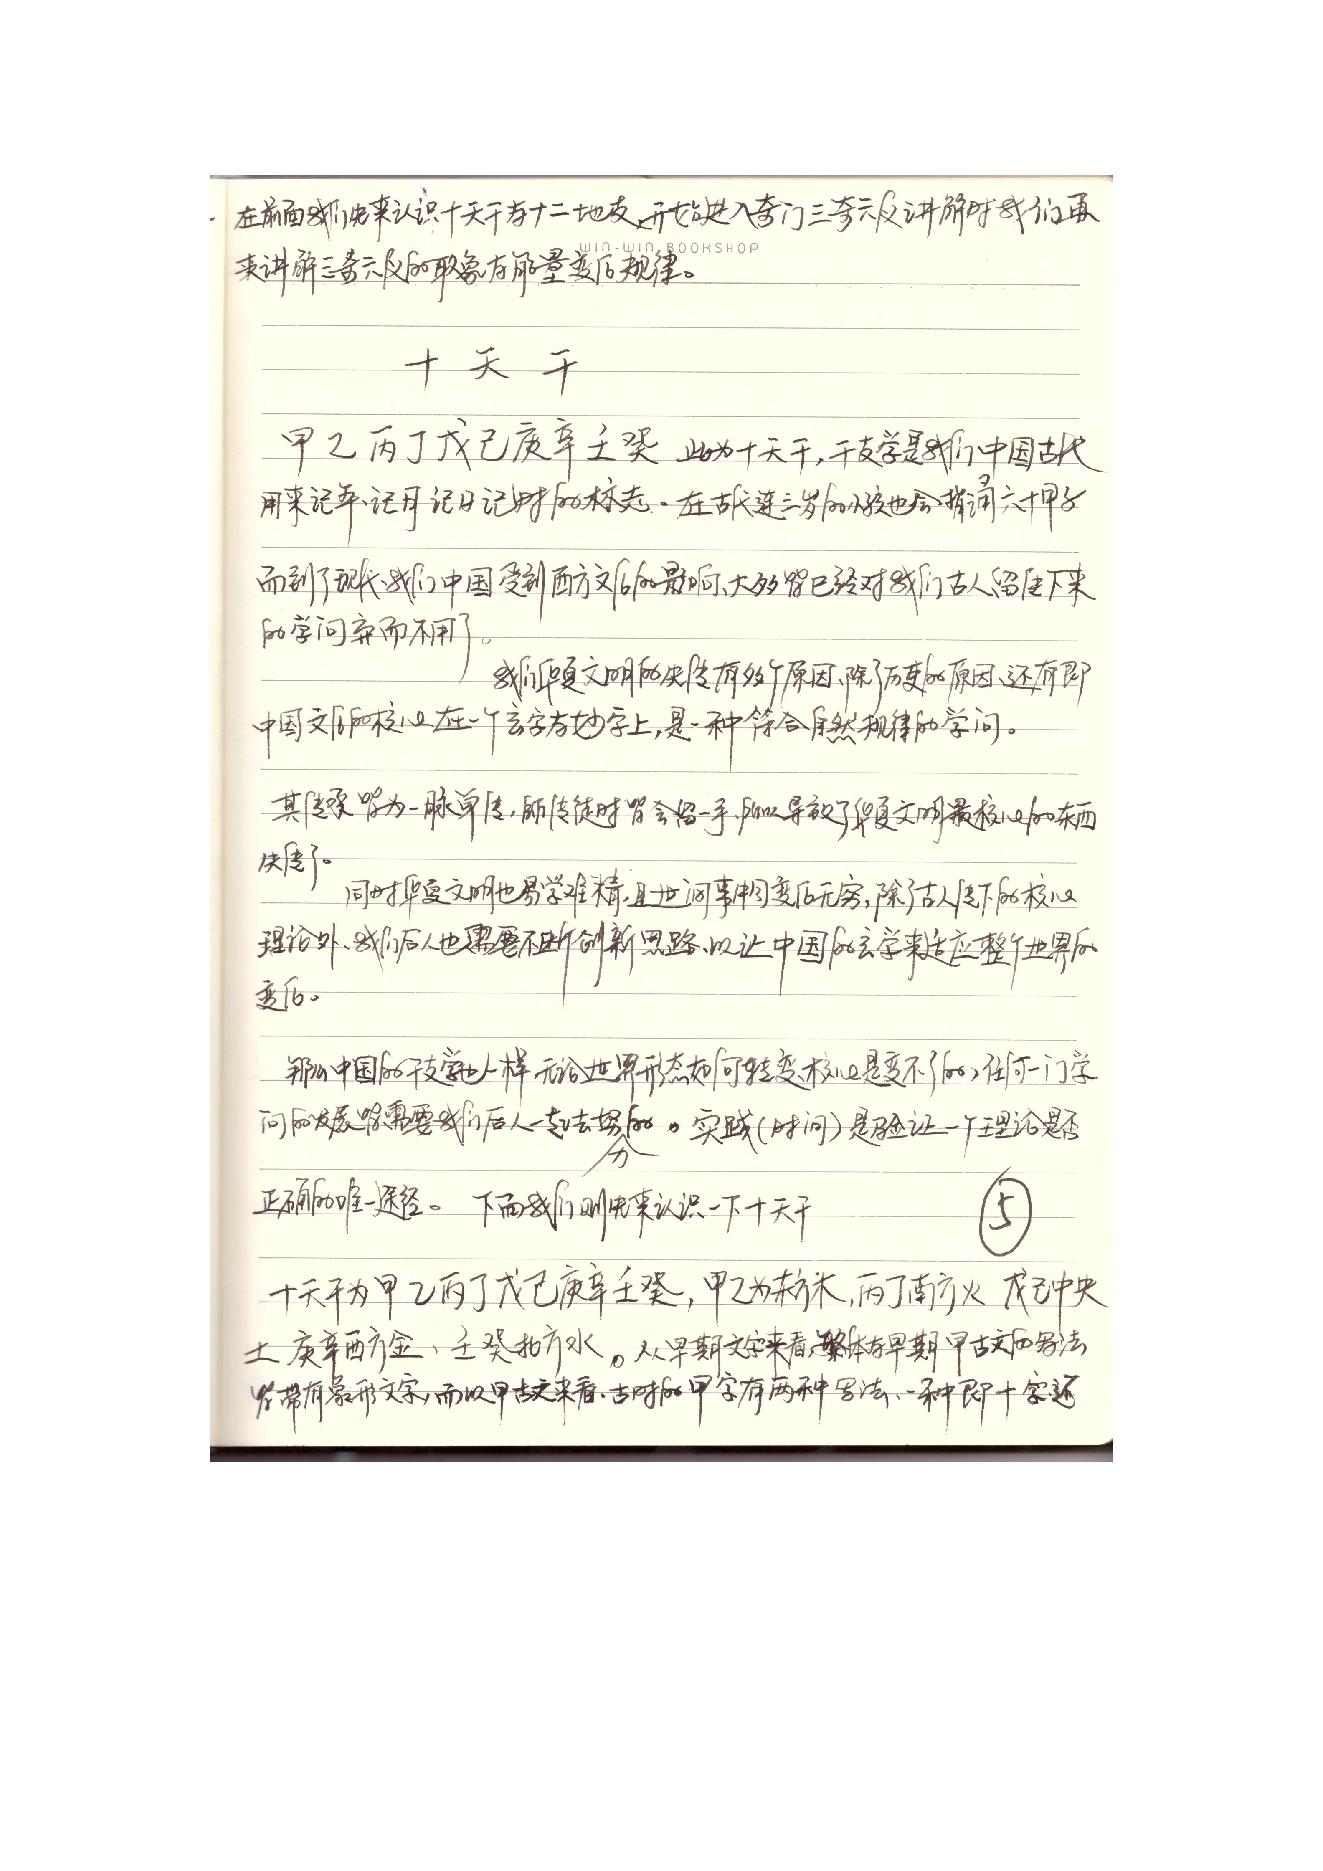 在前面我们先来认识十天干与十二地支,开始进入奇门三奇六仪讲解时我们再
WIN-WIN BOOKSHOP
来讲解三奇六仪的取象与能量变化规律。
十天干
甲乙丙丁戊己庚辛壬癸 此为十天干,干支学是我们中国古代
用来记年、记月记日记时的标志。在古代连三岁的小孩也会背诵六十甲子
而到了现代、我们中国受到西方文化的影响、大多皆已经对我们古人留住下来
的学问弃而不用了。
我们华夏文明的失传有多个原因、除了历变的原因、还有即
中国文化的核心在一个玄字与妙字上,是一种符合自然规律的学问。
其传承皆为一脉单传,师传徒时皆会留一手、所以导致了华夏文明最核心的东西
失传了。
同时华夏文明也易学难精,且世间事物变化无穷,除了古人传下的核心
理论外、我们后人也需要不断创新思路、以让中国的玄学来适应整个世界的
变化。
那么中国的干支学也一样 无论世界形态如何转变核心是变不了的,任何一门学
问的发展皆需要我们后人一起去努力的。实践(时间)是验证一个理论是否
正确的唯一途径。 下面我们则先来认识一下十天干
⑤
十天干为甲乙丙丁戊己庚辛壬癸,甲乙为东方木,丙丁南方火 戊己中央
土 庚辛西方金、壬癸北方水。从早期文字来看,繁体与早期甲古文的写法
皆带有象形文字,而以甲古文来看、古时的甲字有两种写法、一种即十字还